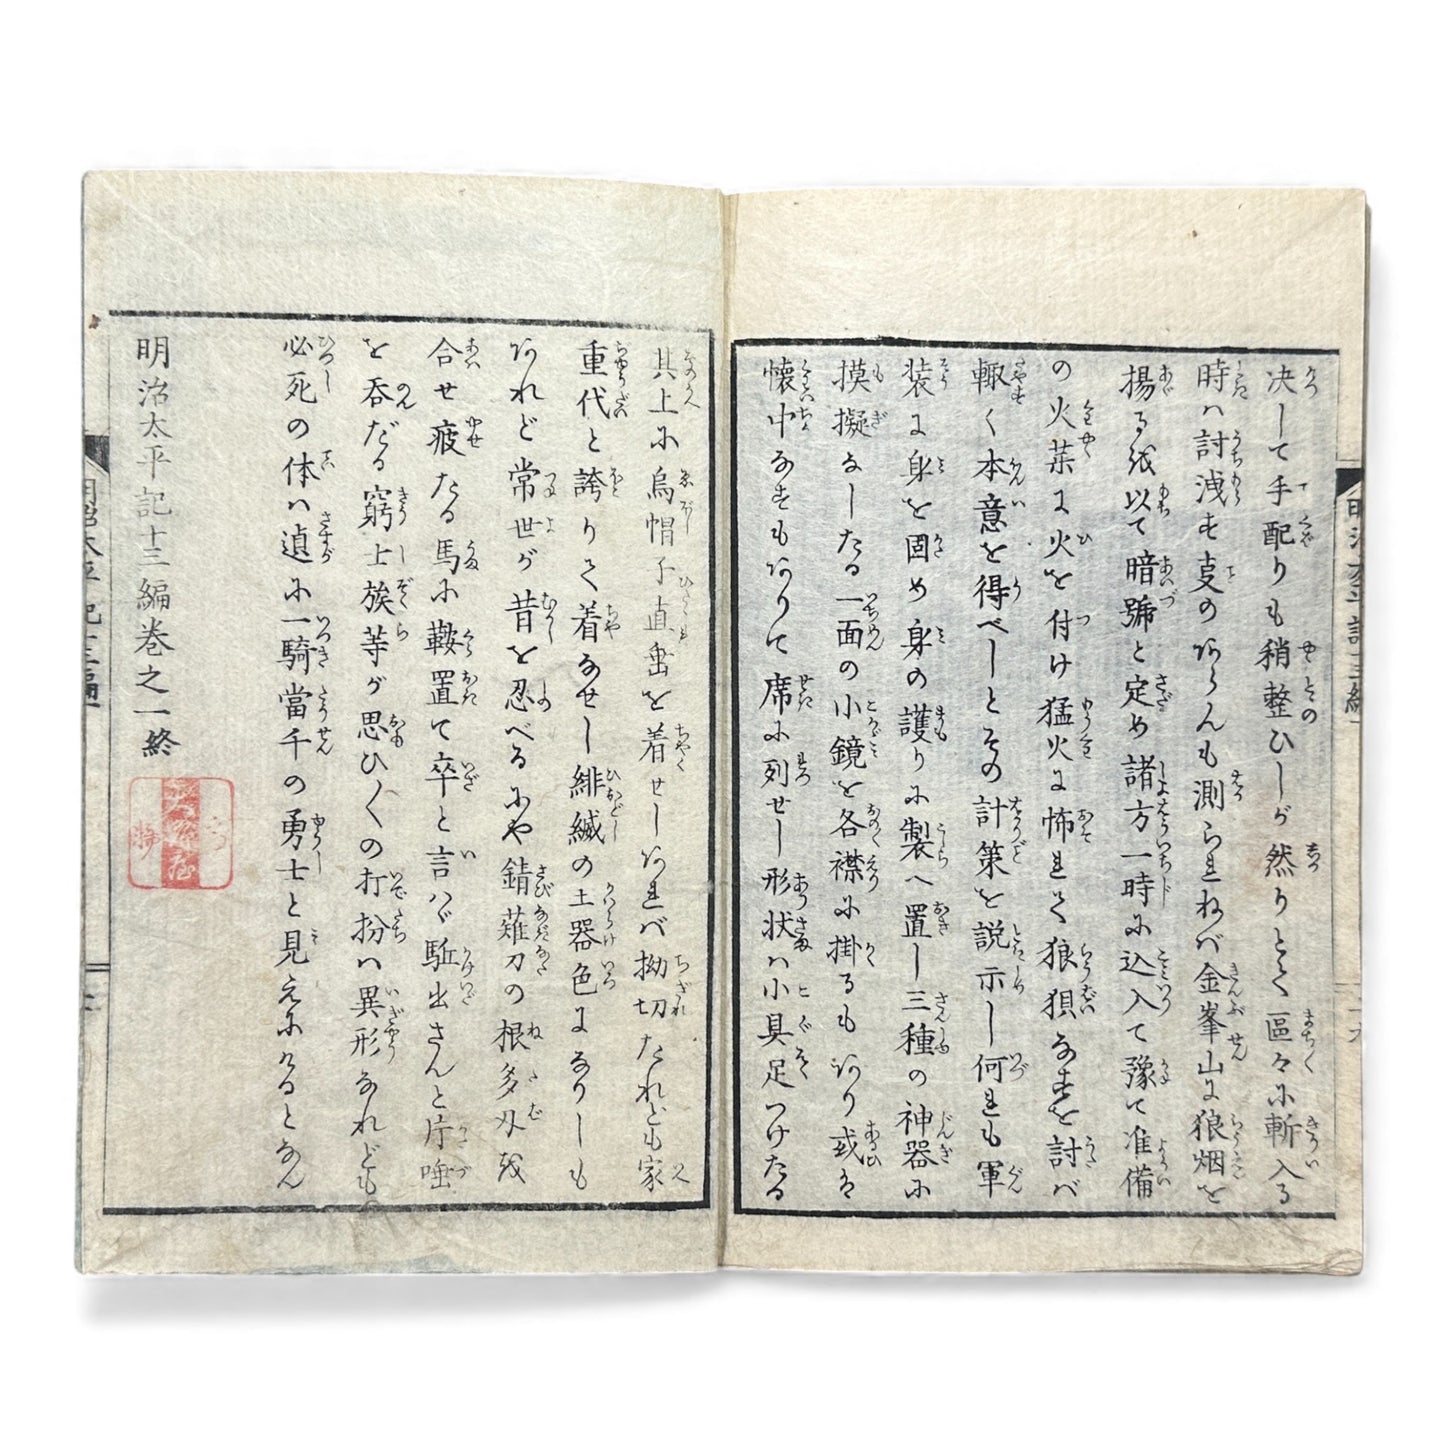 决して手配りも稍整ひしが然りとて區々に斬入る
時ハ討洩す事のあらんも測られねば金峯山に狼烟を
揚るを以て暗號と定め諸方一時に込入て豫て准備
の火藥に火を付け猛火に怖れて狼狽なすを討バ
輙く本意を得べしとその計策を説示し何れも軍
装に身を固め身の護りに製へ置し三種の神器に
摸擬なしたる一面の小鏡を各襟に掛るもあり或は
懐中なすもありて席に列せし形状ハ小具足つけたる
其上に烏帽子直垂を着せしあれば拗切たれども家
重代と誇りて着なせし緋縅の土器色になりしも
あれど常世が昔を忍べるにや錆薙刀の根多刄を
合せ疲たる馬に鞍置て卒と言ハヾ駈出さんと片唾
を呑だる窮士族等が思ひ〱の打扮ハ異形なれども
必死の体ハ遉に一騎當千の勇士と見えにけるとなん
明治太平記十三編巻之一終